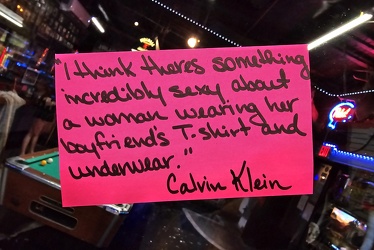 "I think theres something
incredibly sexy about
a woman wearing her
boyfriend's T-shirt and
underwear."
Calvin Klein